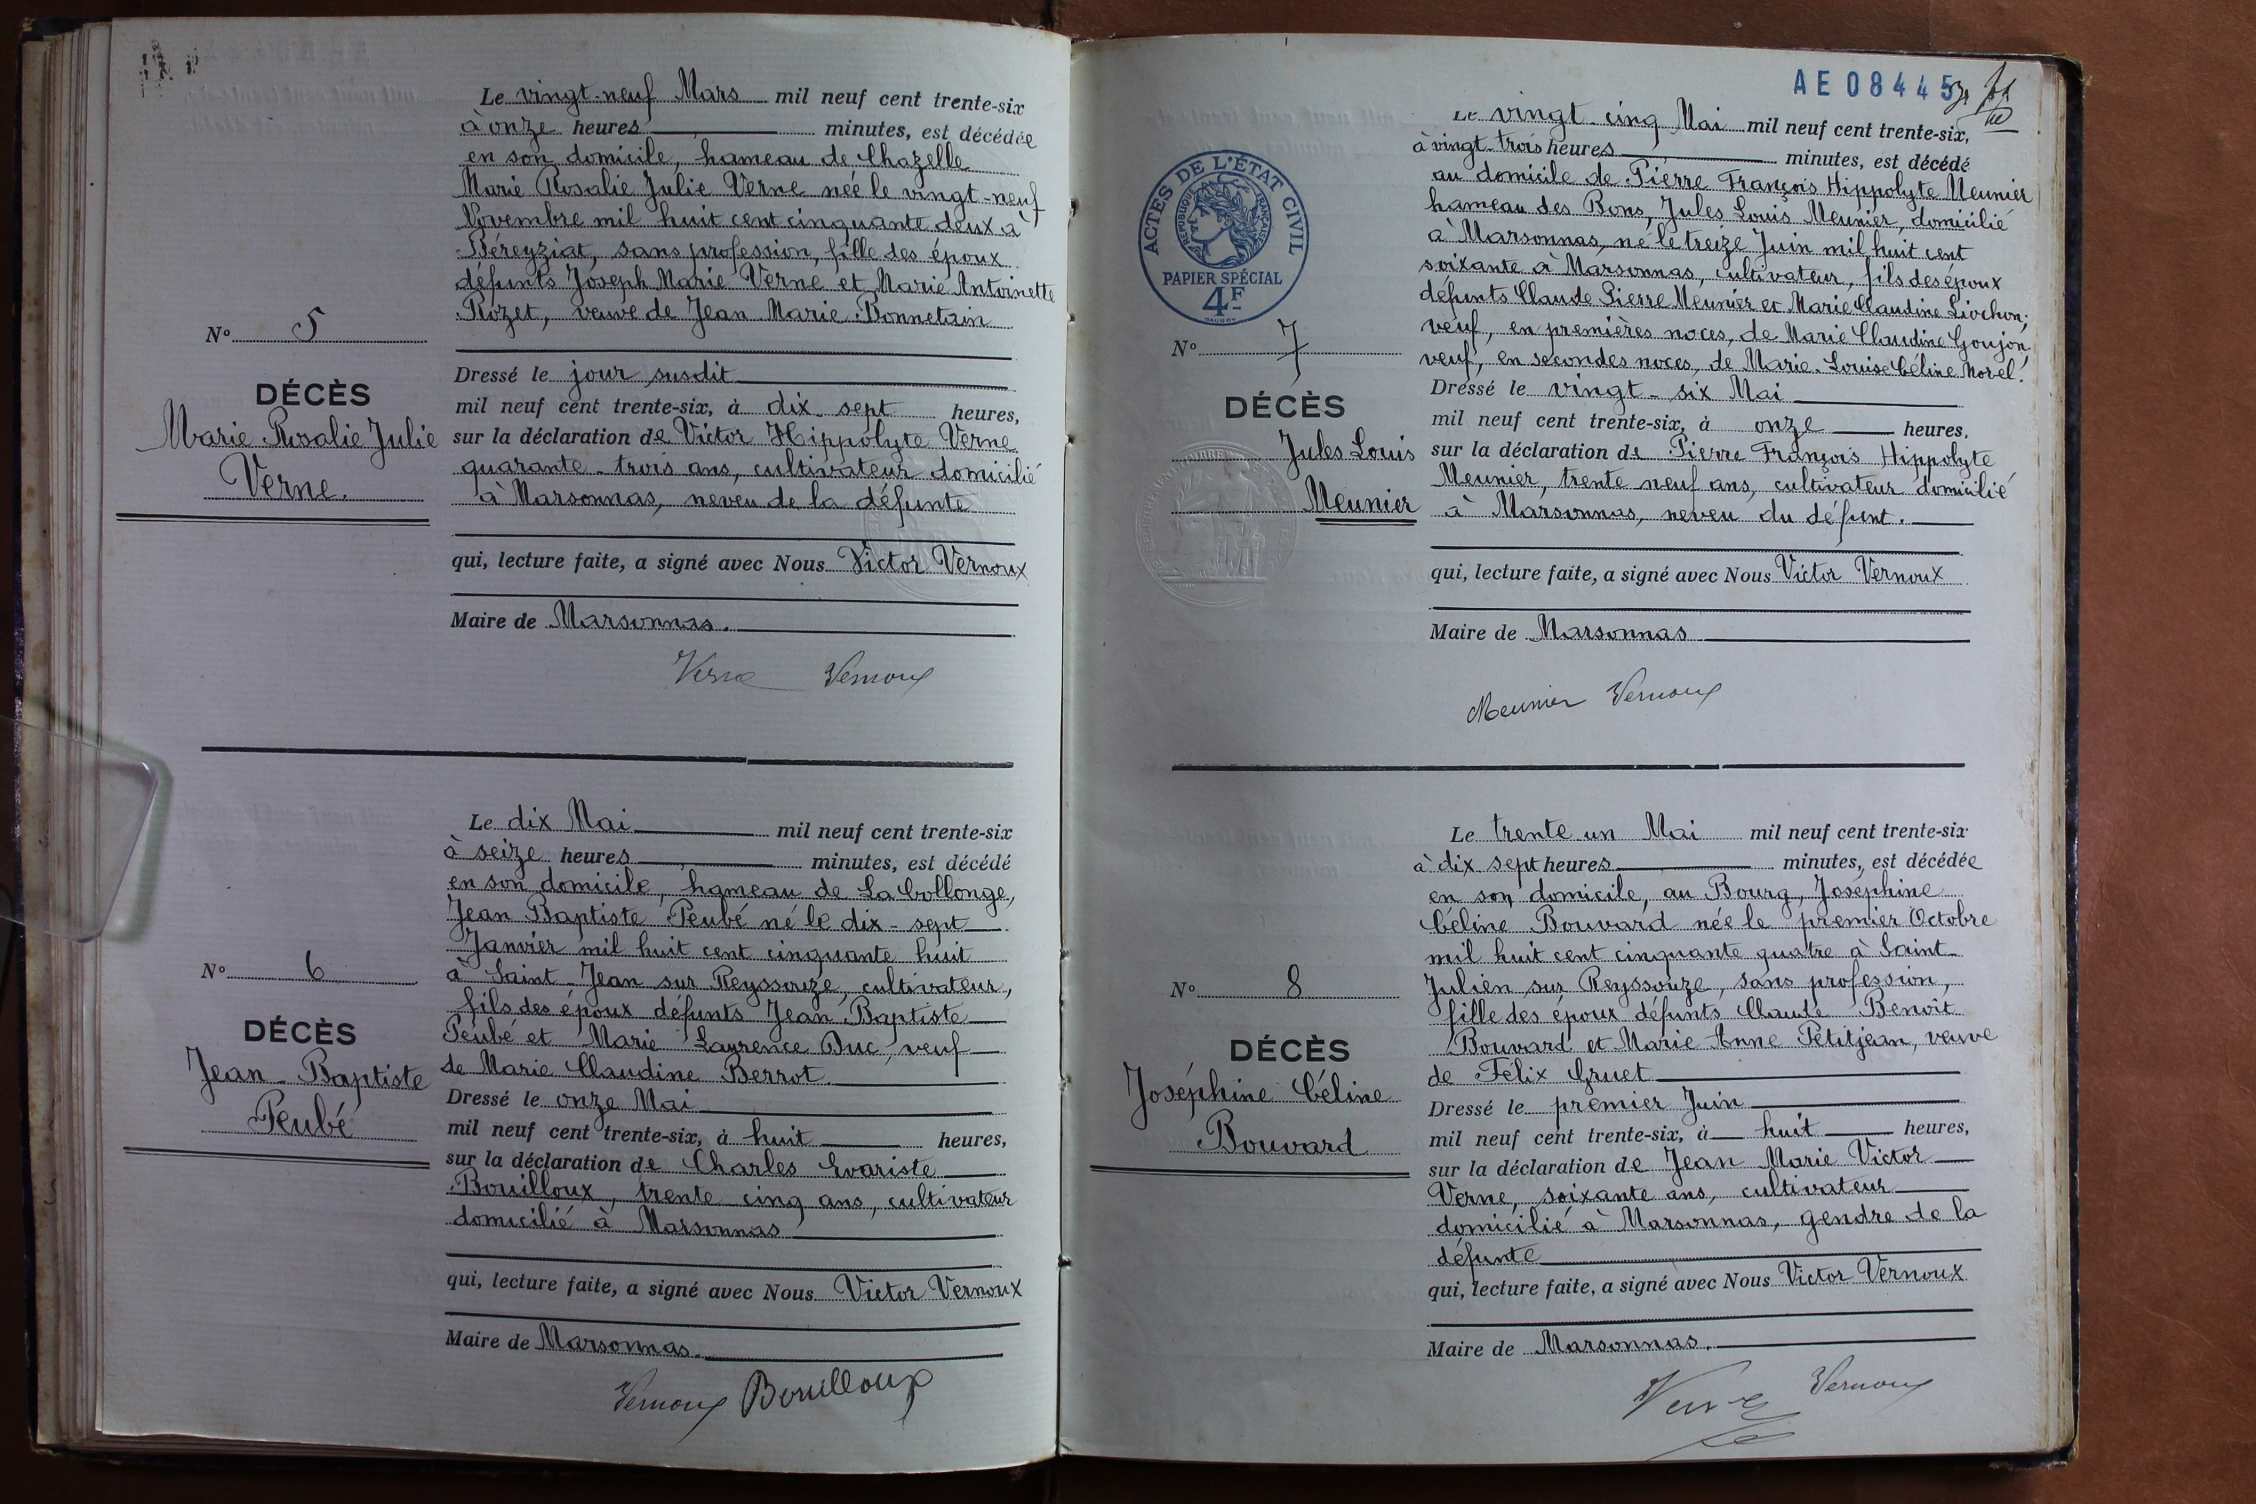 Le vingt-neuf Mars mil neuf cent trente-six
à onze heures minutes, est décédée
en son domicile, hameau de Chazelle
Marie Rosalie Julie Verne née le vingt-neuf
Novembre mil huit cent cinquante deux à
Béreyziat, sans profession, fille des époux
défunts Joseph Marie Verne et Marie Antoinette
Rozet, veuve de Jean Marie Bonnetain
N° 5
DÉCÈS
Marie Rosalie Julie
Verne.
Dressé le jour susdit
mil neuf cent trente-six, à dix-sept heures,
sur la déclaration de Victor Hippolyte Verne
quarante-trois ans, cultivateur domicilié
à Marsonnas, neveu de la défunte
qui, lecture faite, a signé avec Nous Victor Vernoux
Maire de Marsonnas.
Verne Vernoux
Le dix Mai mil neuf cent trente-six
à seize heures minutes, est décédé
en son domicile, hameau de La Collonge,
Jean Baptiste Peubé né le dix-sept
Janvier mil huit cent cinquante huit
à Saint-Jean sur Reyssouze, cultivateur,
fils des époux défunts Jean Baptiste
Peubé et Marie Laurence Duc, veuf
de Marie Claudine Berrot
N° 6
DÉCÈS
Jean-Baptiste
Peubé
Dressé le onze Mai
mil neuf cent trente-six, à huit heures,
sur la déclaration de Charles Evariste
Bouilloux, trente cinq ans, cultivateur
domicilié à Marsonnas
qui, lecture faite, a signé avec Nous Victor Vernoux
Maire de Marsonnas.
Vernoux Bouilloux
AE 08445
ACTES DE L'ÉTAT CIVIL
RÉPUBLIQUE FRANÇAISE
PAPIER SPÉCIAL
4F
Le vingt-cinq Mai mil neuf cent trente-six,
à vingt-trois heures minutes, est décédé
au domicile de Pierre François Hippolyte Meunier
hameau des Bons, Jules Louis Meunier, domicilié
à Marsonnas, né le treize Juin mil huit cent
soixante à Marsonnas, cultivateur, fils des époux
défunts Claude Pierre Meunier et Marie Claudine Liochon;
veuf, en premières noces, de Marie Claudine Goujon,
veuf, en secondes noces, de Marie-Louise Céline Morel.
N° 7
DÉCÈS
Jules Louis
Meunier
Dressé le vingt-six Mai
mil neuf cent trente-six, à onze heures,
sur la déclaration de Pierre François Hippolyte
Meunier, trente neuf ans, cultivateur domicilié
à Marsonnas, neveu du défunt.
qui, lecture faite, a signé avec Nous Victor Vernoux
Maire de Marsonnas
Meunier Vernoux
Le trente-un Mai mil neuf cent trente-six
à dix-sept heures minutes, est décédée
en son domicile, au Bourg, Joséphine
Céline Bouvard née le premier Octobre
mil huit cent cinquante quatre à Saint-
Julien sur Reyssouze, sans profession,
fille des époux défunts Claude Benoît
Bouvard et Marie-Anne Petitjean, veuve
de Félix Gruet
N° 8
DÉCÈS
Joséphine Céline
Bouvard
Dressé le premier Juin
mil neuf cent trente-six, à huit heures,
sur la déclaration de Jean Marie Victor
Verne, soixante ans, cultivateur
domicilié à Marsonnas, gendre de la
défunte
qui, lecture faite, a signé avec Nous Victor Vernoux
Maire de Marsonnas.
Verne Vernoux